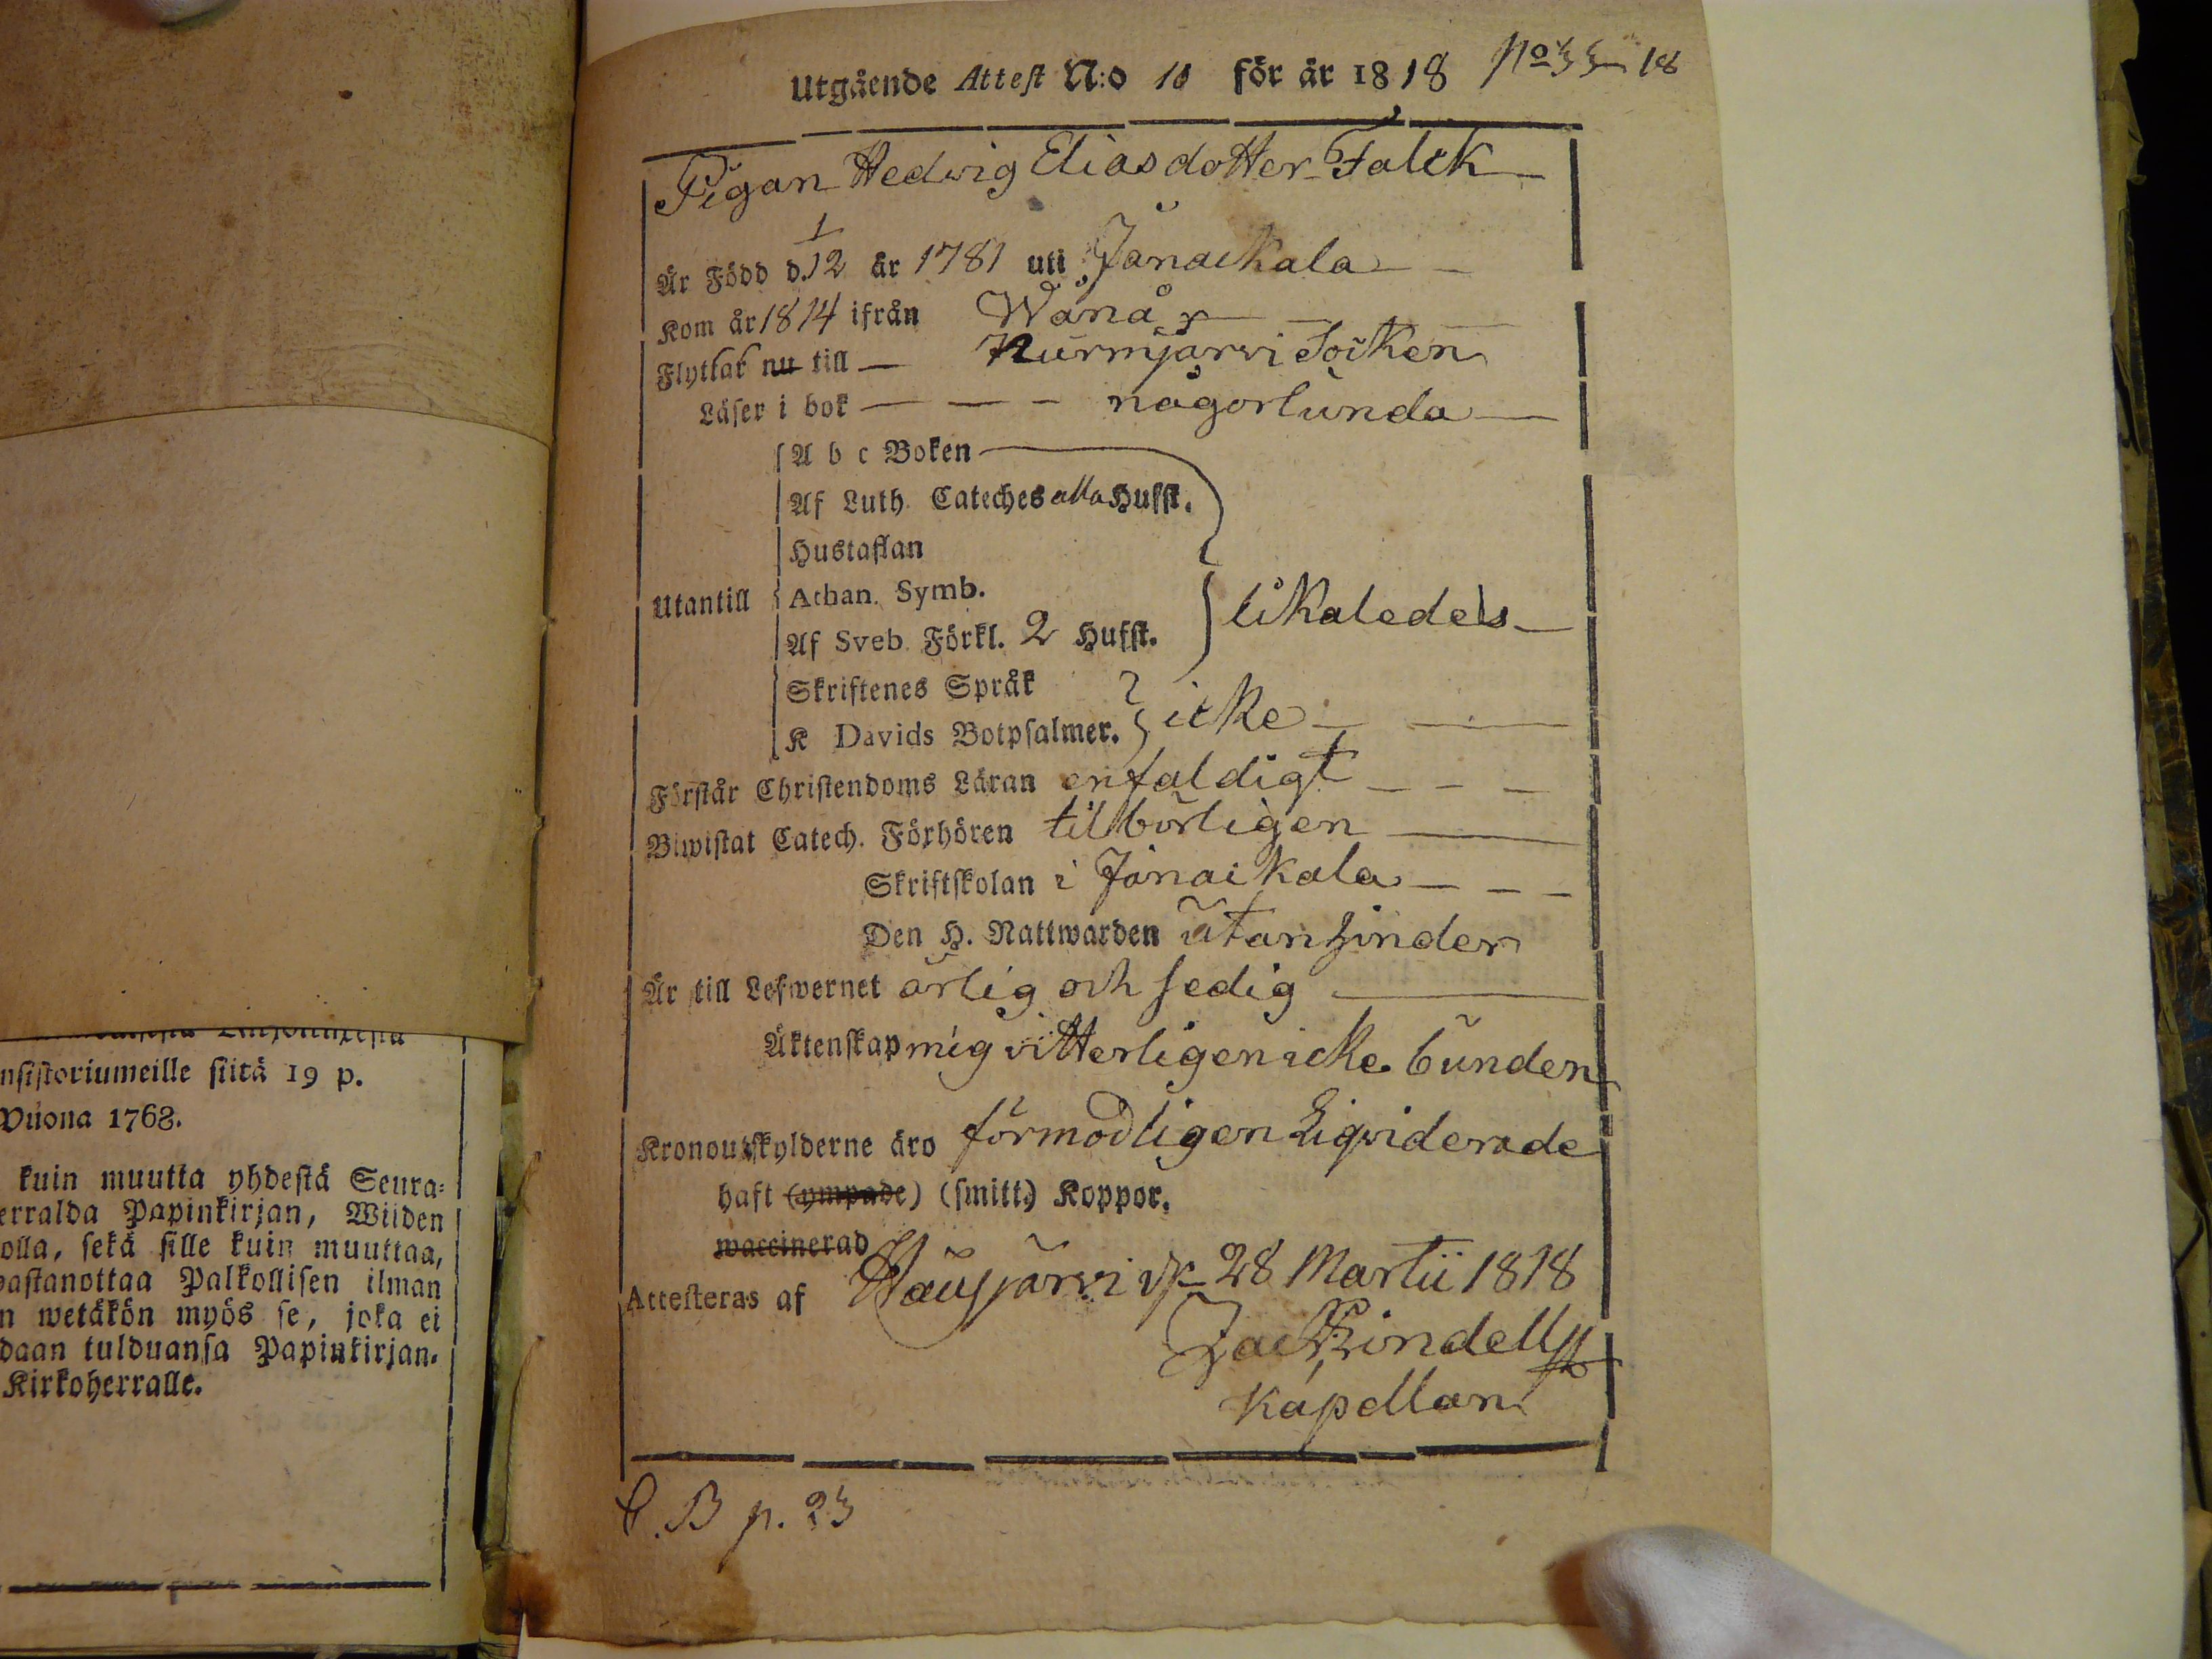 nsistoriumeille siitä 19 p.
Wuona 1768.
kuin muutta yhdestä Seura-
erralda Papinkirjan, Wiiden
olla, sekä sille kuin muuttaa,
wastanottaa Palkollisen ilman
n wetäkön myös se, joka ei
daan tulduansa Papinkirjan-
Kirkoherralle.
Utgående Attest N:o 10 för år 1818 No 33 18
Pigan Hedwig Eliasdotter Falck
Är Född d. 1/12 år 1781 uti Janackala
Kom år 1814 ifrån Wånå
Flyttar nu till Nurmjärvi Socken
Läser i bok någorlunda
A b c Boken
Af Luth. Cateches alla Hufst.
Hustaflan
Utantill Athan. Symb.
Af Sveb. Förkl. 2 Hufst. likaledes
Skriftenes Språk
K Davids Botpsalmer. icke
Förstår Christendoms Läran enfaldigt
Biwistat Catech. Förhören tilbörligen
Skriftskolan i Janaikala
Den H. Nattwarden utan hinder
Är till Lefwernet ärlig och sedig
Äktenskap mig vitterligen icke bunden
Kronoutskylderne äro förmodligen Liqviderade
haft (ympade) (smitt.) Koppor.
waccinerad
Attesteras af Hausjärvi d. 28 Martii 1818
Zac Lindell
Kapellan
C. B p. 23